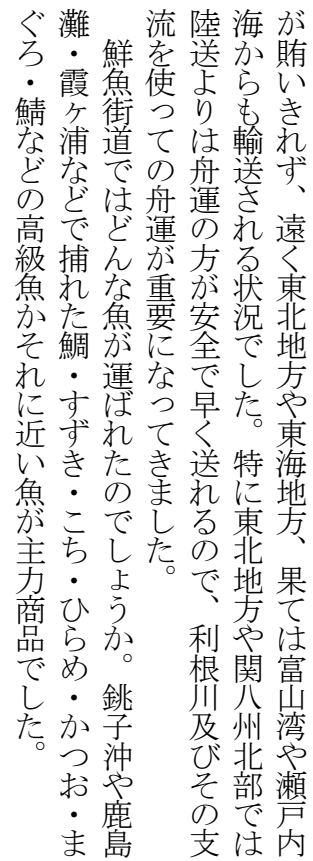 が賄いきれず、遠く東北地方や東海地方、果ては富山湾や瀬戸内
海からも輸送される状況でした。特に東北地方や関八州北部では
陸送よりは舟運の方が安全で早く送れるので、利根川及びその支
流を使っての舟運が重要になってきました。
　鮮魚街道ではどんな魚が運ばれたのでしょうか。銚子沖や鹿島
灘・霞ヶ浦などで捕れた鯛・すずき・こち・ひらめ・かつお・ま
ぐろ・鯖などの高級魚かそれに近い魚が主力商品でした。